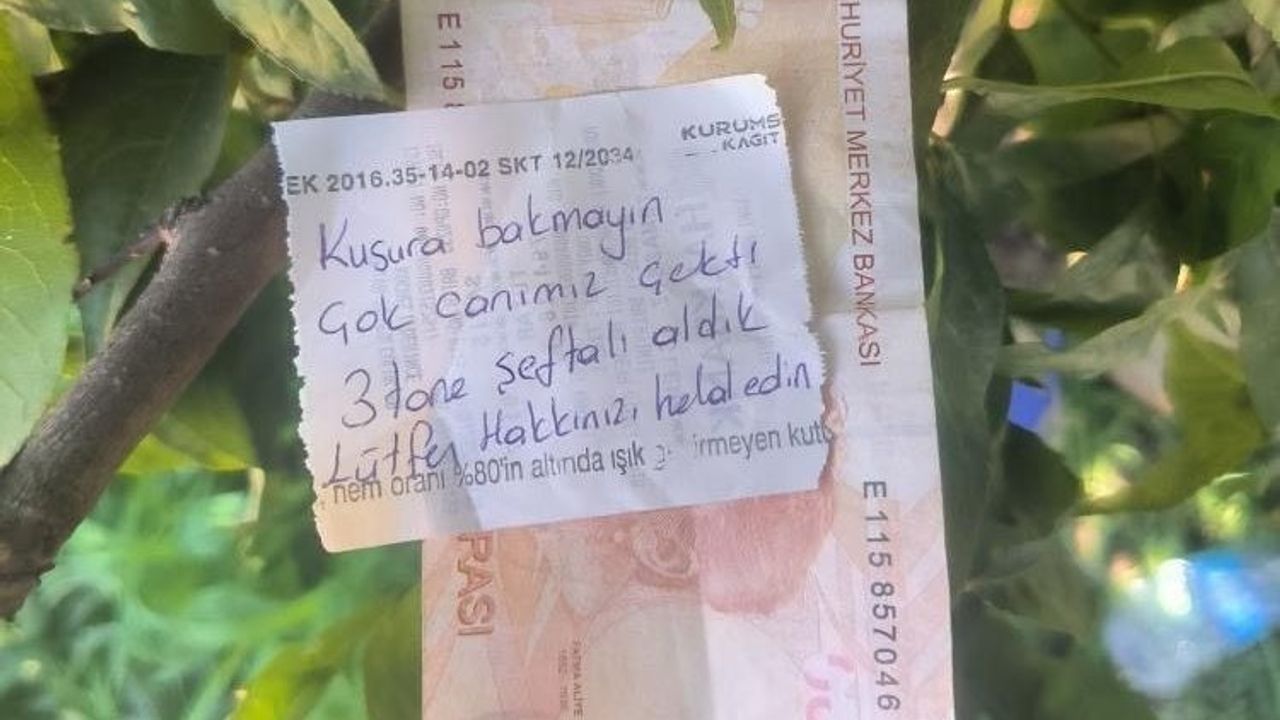 E 115 8
HURİYET MERKEZ BANKASI
KURUMS
KAĞIT
EK 2016.35-14-02 SKT 12/2034
Kusura bakmayın
Çok canımız çekti
3 tane şeftali aldık
Lütfen Hakkınızı helal edin
nem oranı %80'in altında ışık irmeyen kutu
RASI
FATMA ALİYE
E 115 857046